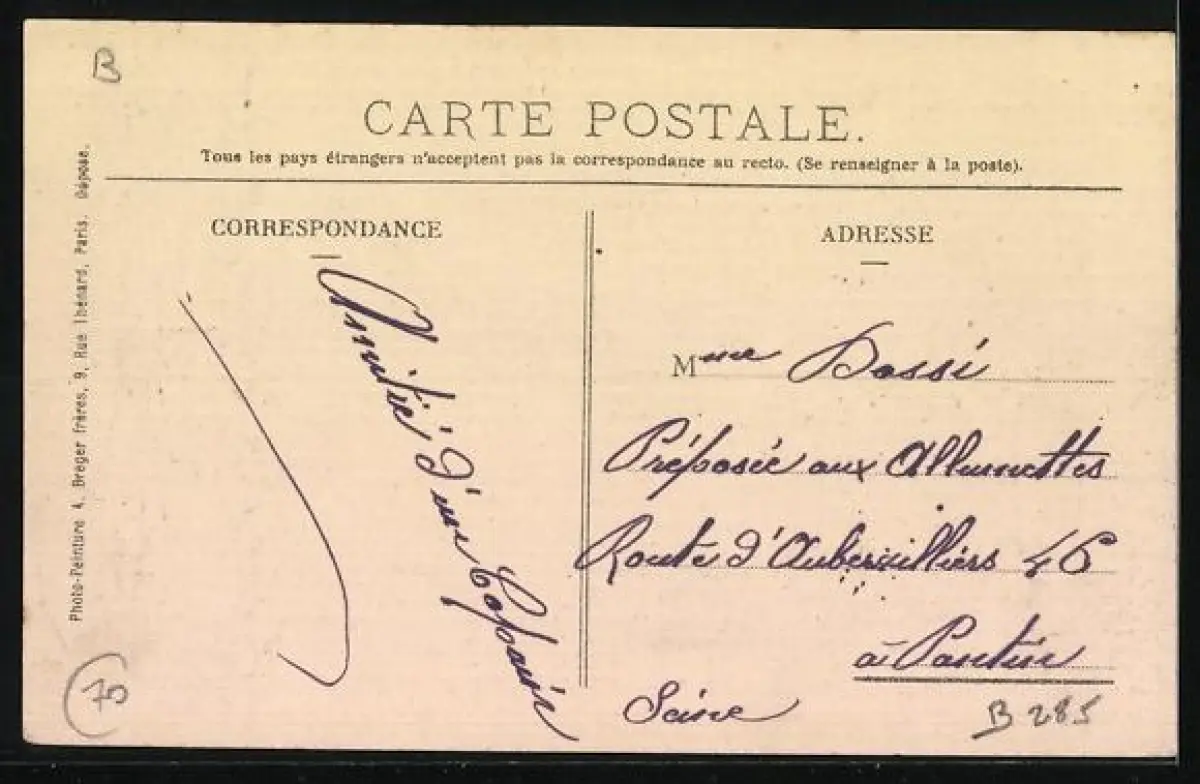 B
CARTE POSTALE.
Tous les pays étrangers n'acceptent pas la correspondance au recto. (Se renseigner à la poste).
Photo-Peinture A. Breger frères, 9, Rue Thénard, Paris. Déposé.
CORRESPONDANCE
Amitié d'un Copain
ADRESSE
Mme Dossé
Préposée aux Allumettes
Route d'Aubervilliers 46
à Pantin
Seine
75
B 285